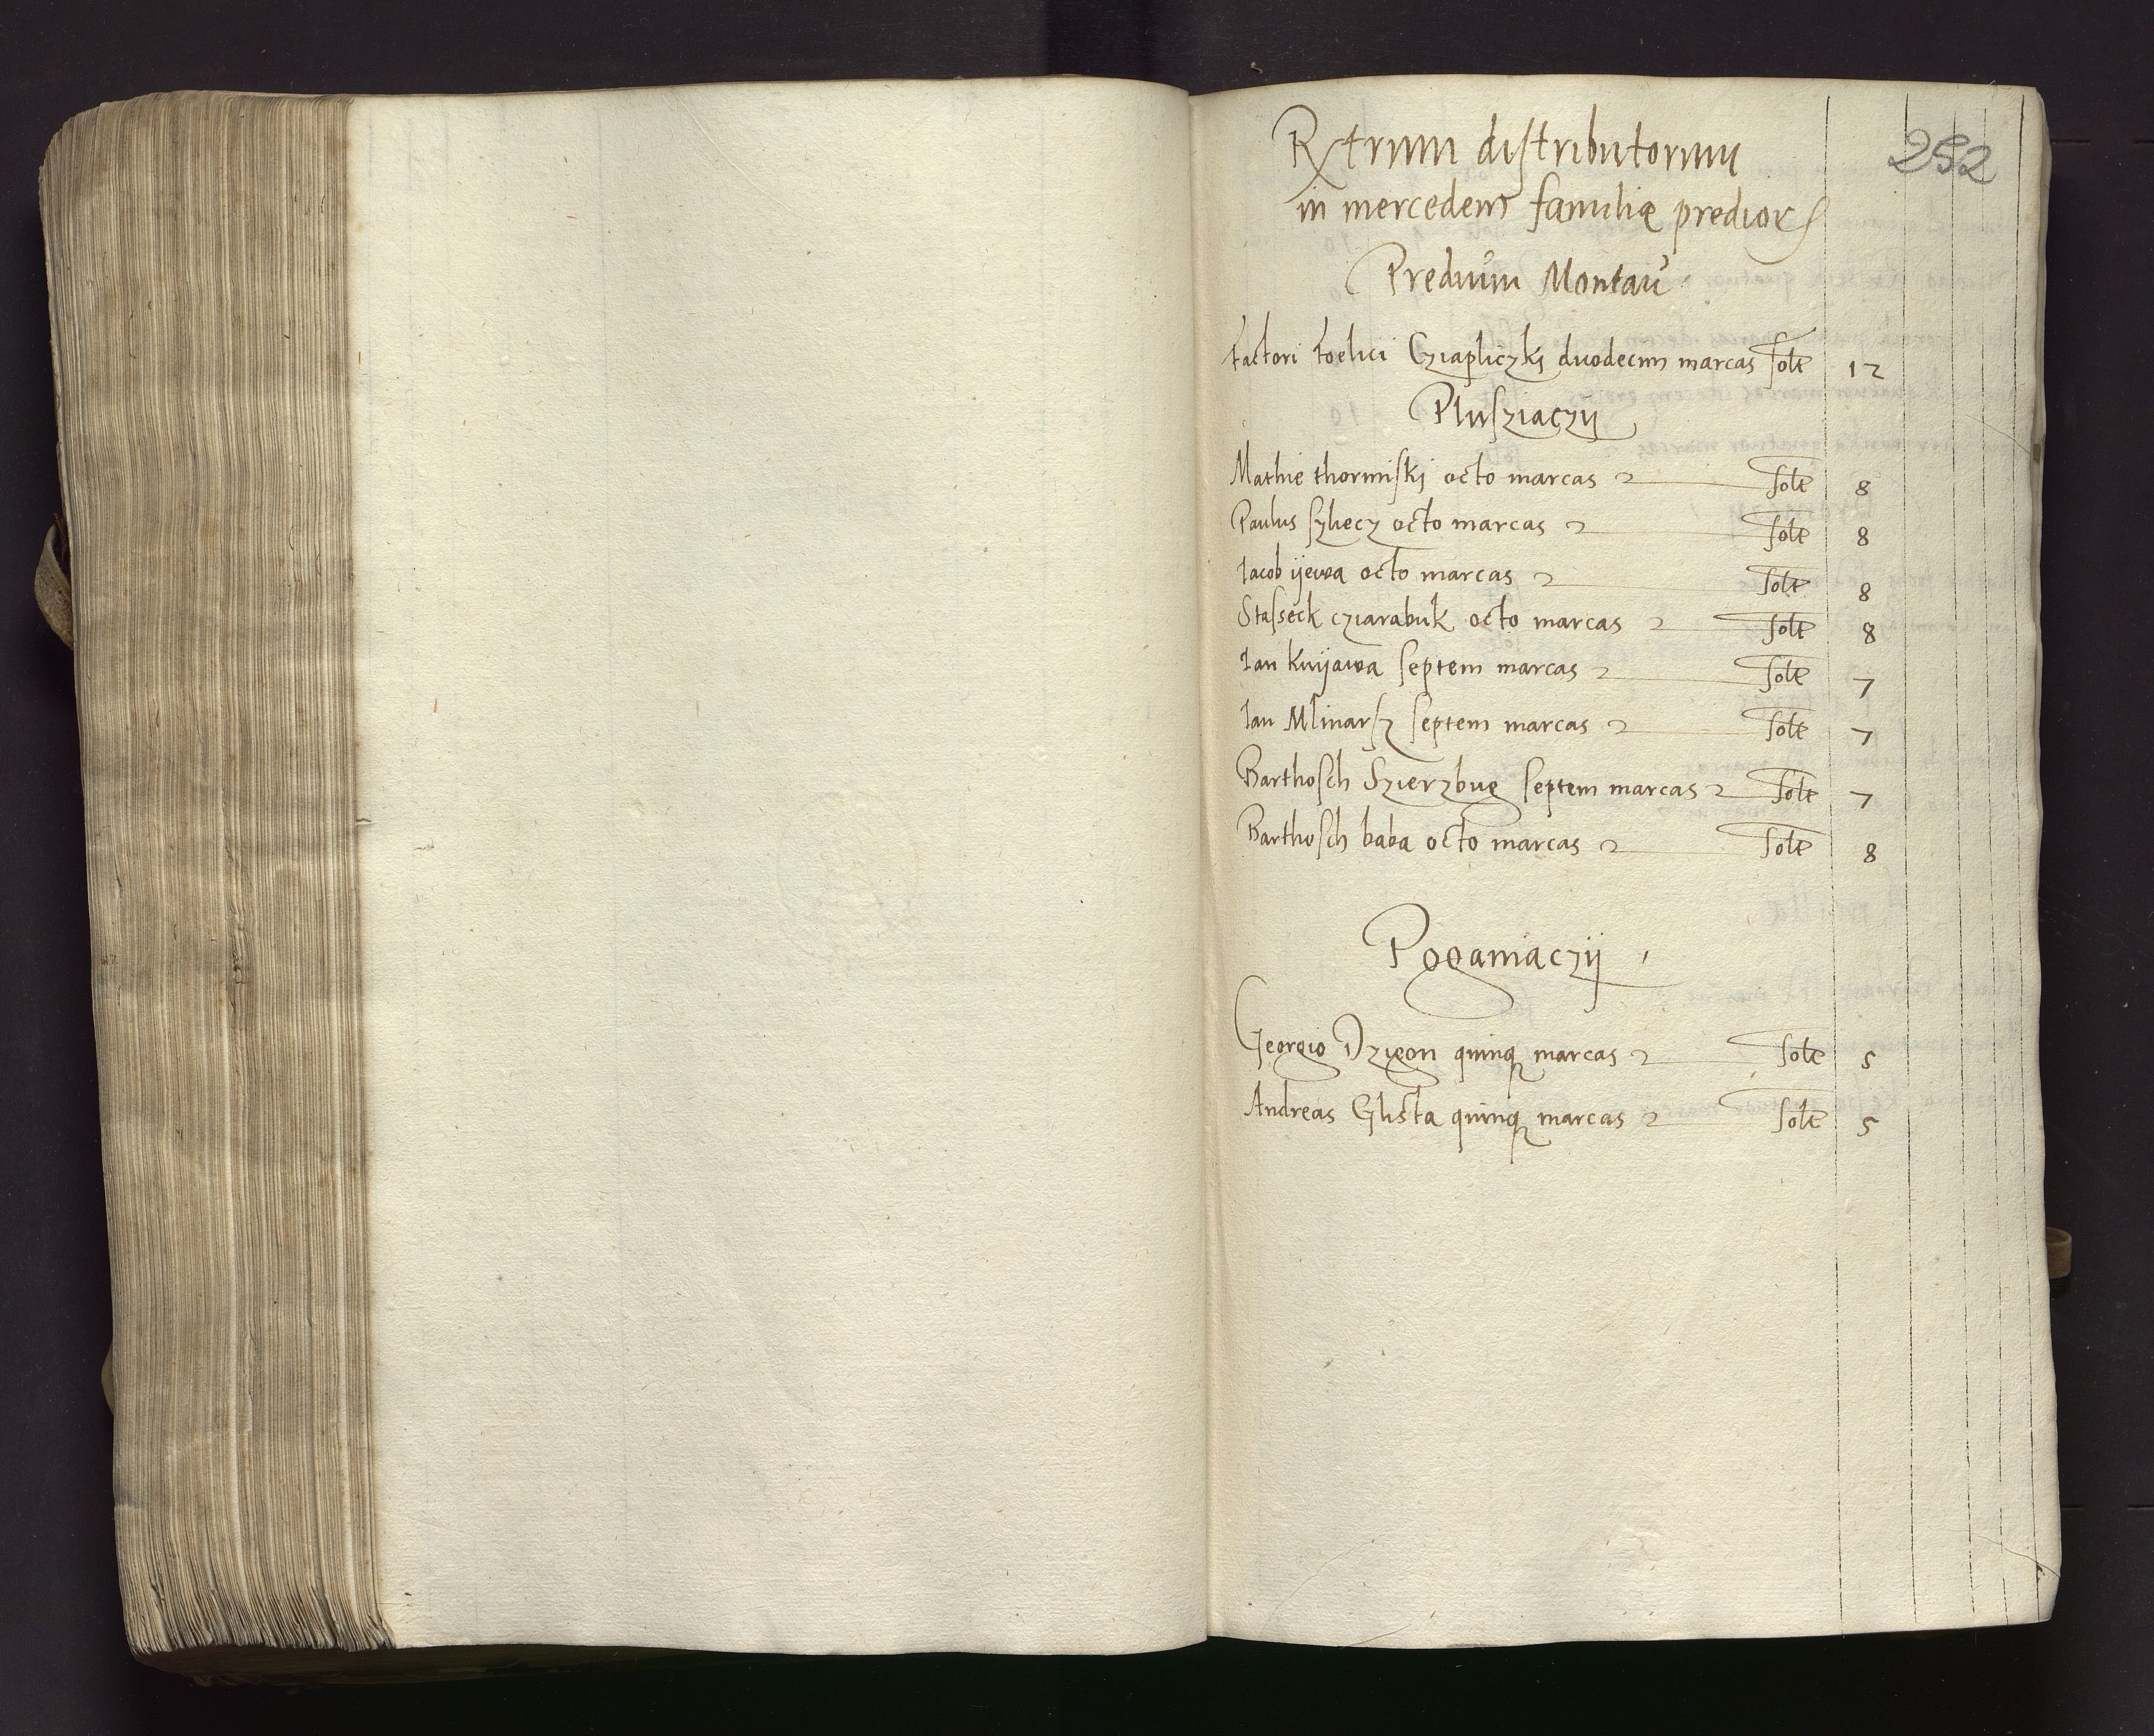 252
Rxtrum distributorum
in mercedem familię predior
Predium Montau
Factori Foelici Cziapliczki duodecim marcas solt 12
Plusziaczij
Mathie thormiski octo marcas solt 8
Paulus szliecz octo marcas solt 8
Iacob ijewa octo marcas solt 8
Stasseck cziarabuk octo marcas solt 8
Ian kuijawa septem marcas solt 7
Ian Mlinarsz septem marcas solt 7
Barthosch Szierzbug septem marcas solt 7
Barthosch baba octo marcas solt 8
Poganiaczij
Georgio Dzigon quinq marcas solt 5
Andreas Glista quinq marcas solt 5